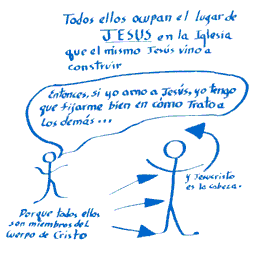 Todos ellos ocupan el lugar de
JESUS en la Iglesia
que el mismo Jesús vino a
construir
Entonces, si yo amo a Jesús, yo tengo
que fijarme bien en cómo Trato a
los demás...
y Jesucristo
es la cabeza.
Porque todos ellos
son miembros del
Cuerpo de Cristo